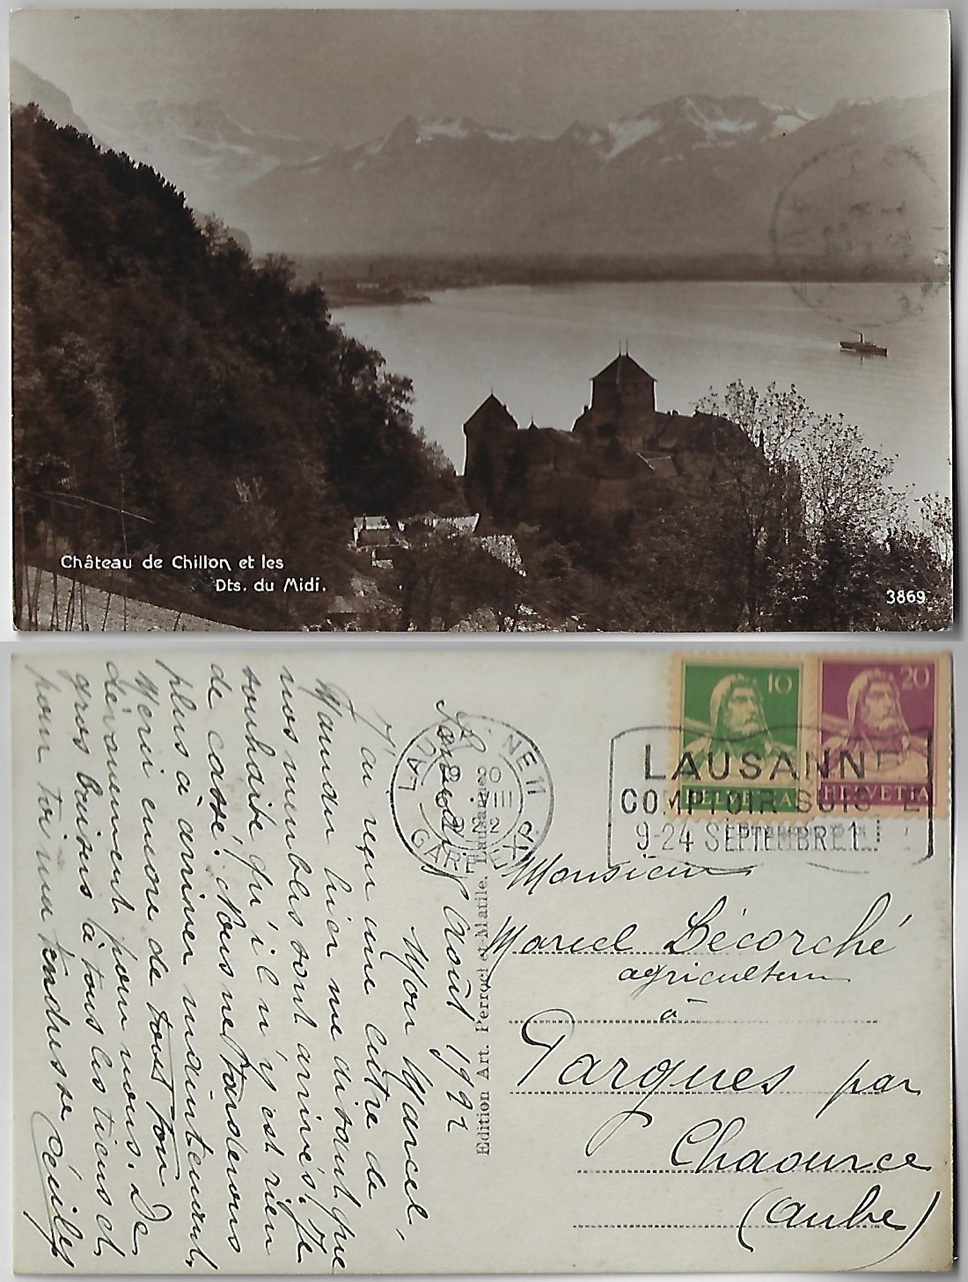 Château de Chillon et les
Dts. du Midi.
3869
10
20
HELVETIA
HELVETIA
LAUSANNE
COMPTOIR SUISSE
9-24 SEPTEMBRE 1
LAUSANNE 11
20
VIII
GARE EXP.
Août 192
Mon Marcel,
J'ai reçu une lettre de
Maman hier me disant que
nos meubles sont arrivés. Je
souhaite qu'il n'y est rien
de cassé. Nous ne tarderons
plus à arriver maintenant.
Merci encore de tout ton
dévouement pour nous. De
gros baisers à tous les tiens et
pour toi ma tendresse
Edition Art. Perrochet-Matile, Lausanne
Monsieur
Marcel Décorché
agriculteur
à
Pargues par
Chaource
(Aube)